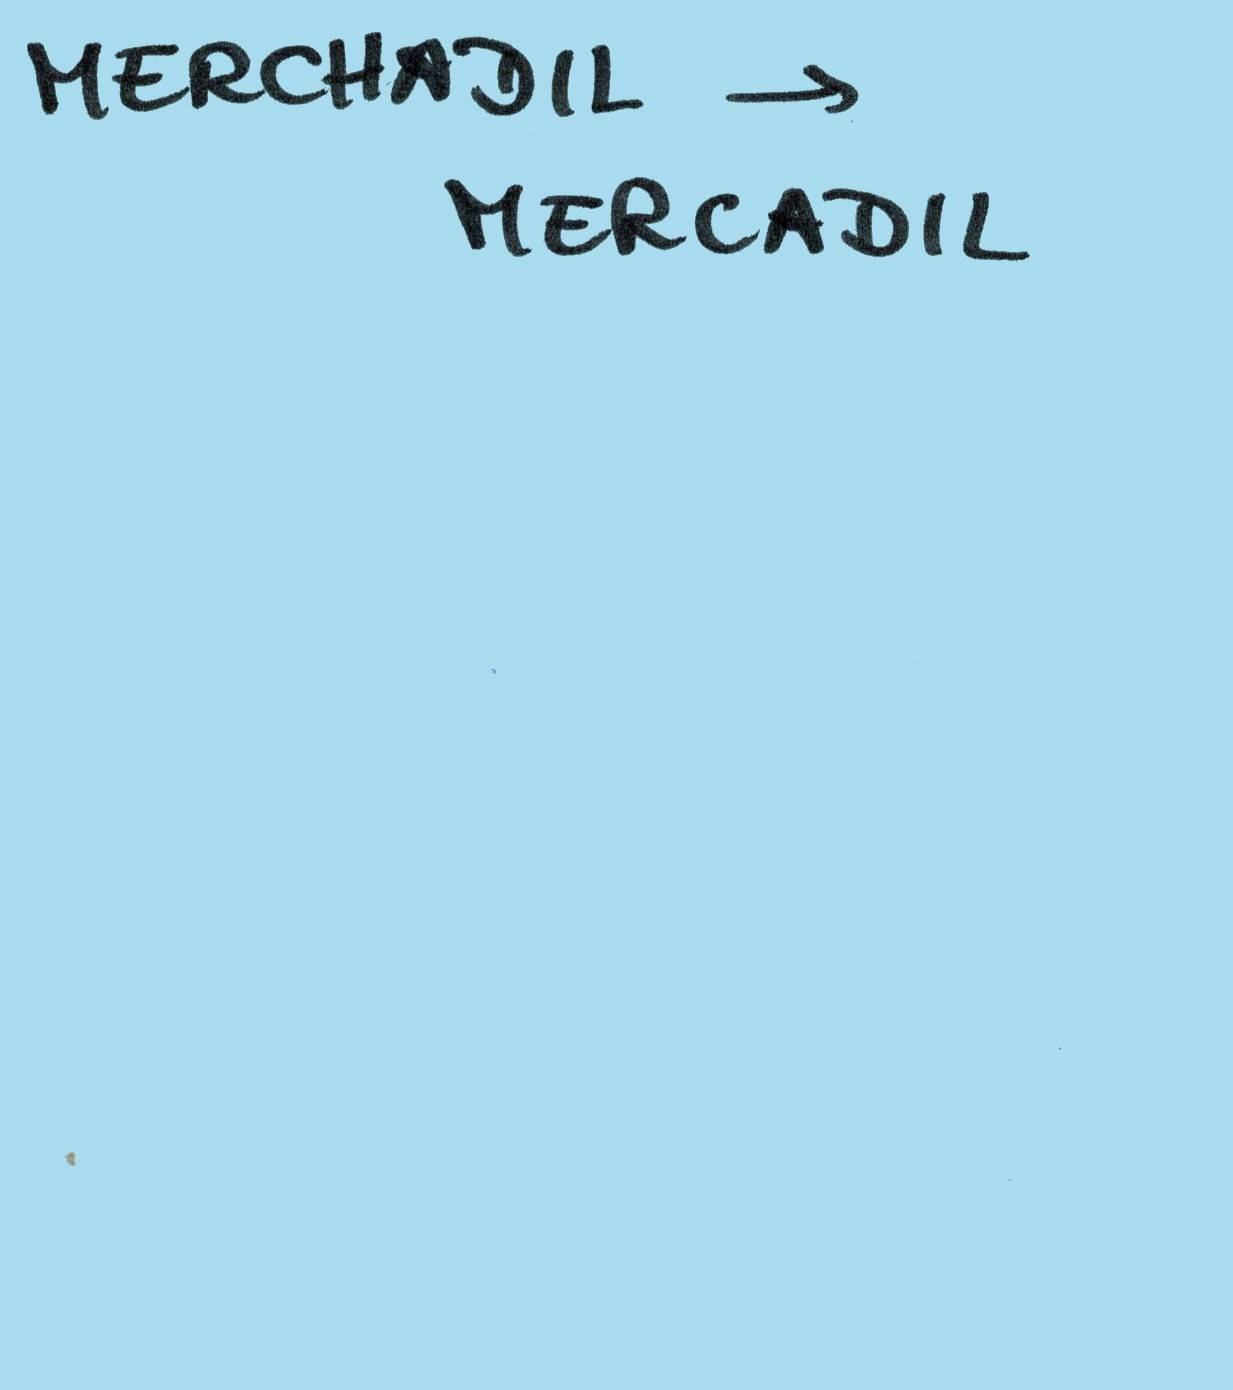 MERCHADIL →
MERCADIL